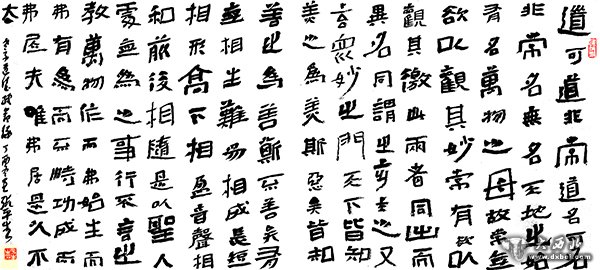 道可道非常道名可名
非常名無名天地之始
有名萬物之母故常無
欲以觀其妙常有欲以
觀其徼此兩者同出而
異名同謂之玄玄之又
玄眾妙之門天下皆知
美之為美斯惡矣皆知
善之為善斯不善矣有
無相生難易相成長短
相形高下相盈音聲相
和前後相隨是以聖人
處無為之事行不言之
教萬物作而弗始生而
弗有為而不恃功成而
弗居夫唯弗居是以不
去